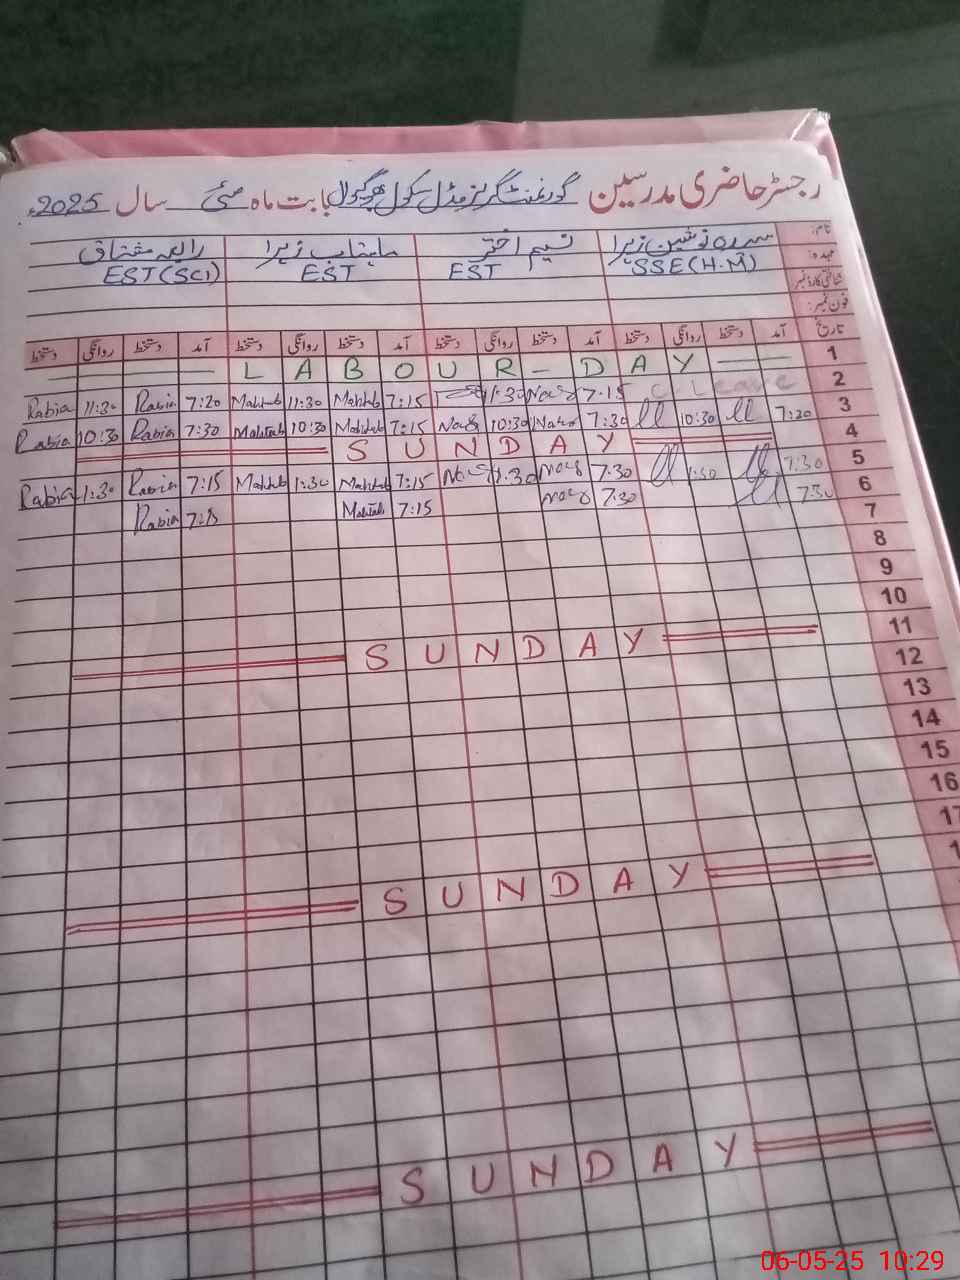 رجسٹر حاضری مدرسین گورنمنٹ گرلز مڈل سکول بابت ماہ مئی سال 2025ء
نام: سدرہ نوشین زہرا نسیم اختر ماہتاب زہرا رابعہ مشتاق
عہدہ: SSE(H.M) EST EST EST(SCI)
شناختی کارڈ نمبر
فون نمبر:
تاریخ آمد دستخط روانگی دستخط آمد دستخط روانگی دستخط آمد دستخط روانگی دستخط آمد دستخط روانگی دستخط
LABOUR - DAY 1
Rabia 11:30 Rabia 7:20 Mahtab 11:30 Mahtab 7:15 1:30 7:15 C-Leave 2
Rabia 10:30 Rabia 7:30 Mahtab 10:30 Mahtab 7:15 10:30 7:30 10:30 7:20 3
SUNDAY 4
Rabia 1:30 Rabia 7:15 Mahtab 1:30 Mahtab 7:15 1:30 7:30 1:30 7:30 5
Rabia 7:15 Mahtab 7:15 7:30 7:30 6
7
8
9
10
SUNDAY 11
12
13
14
15
16
17
SUNDAY
SUNDAY
06-05-25 10:29